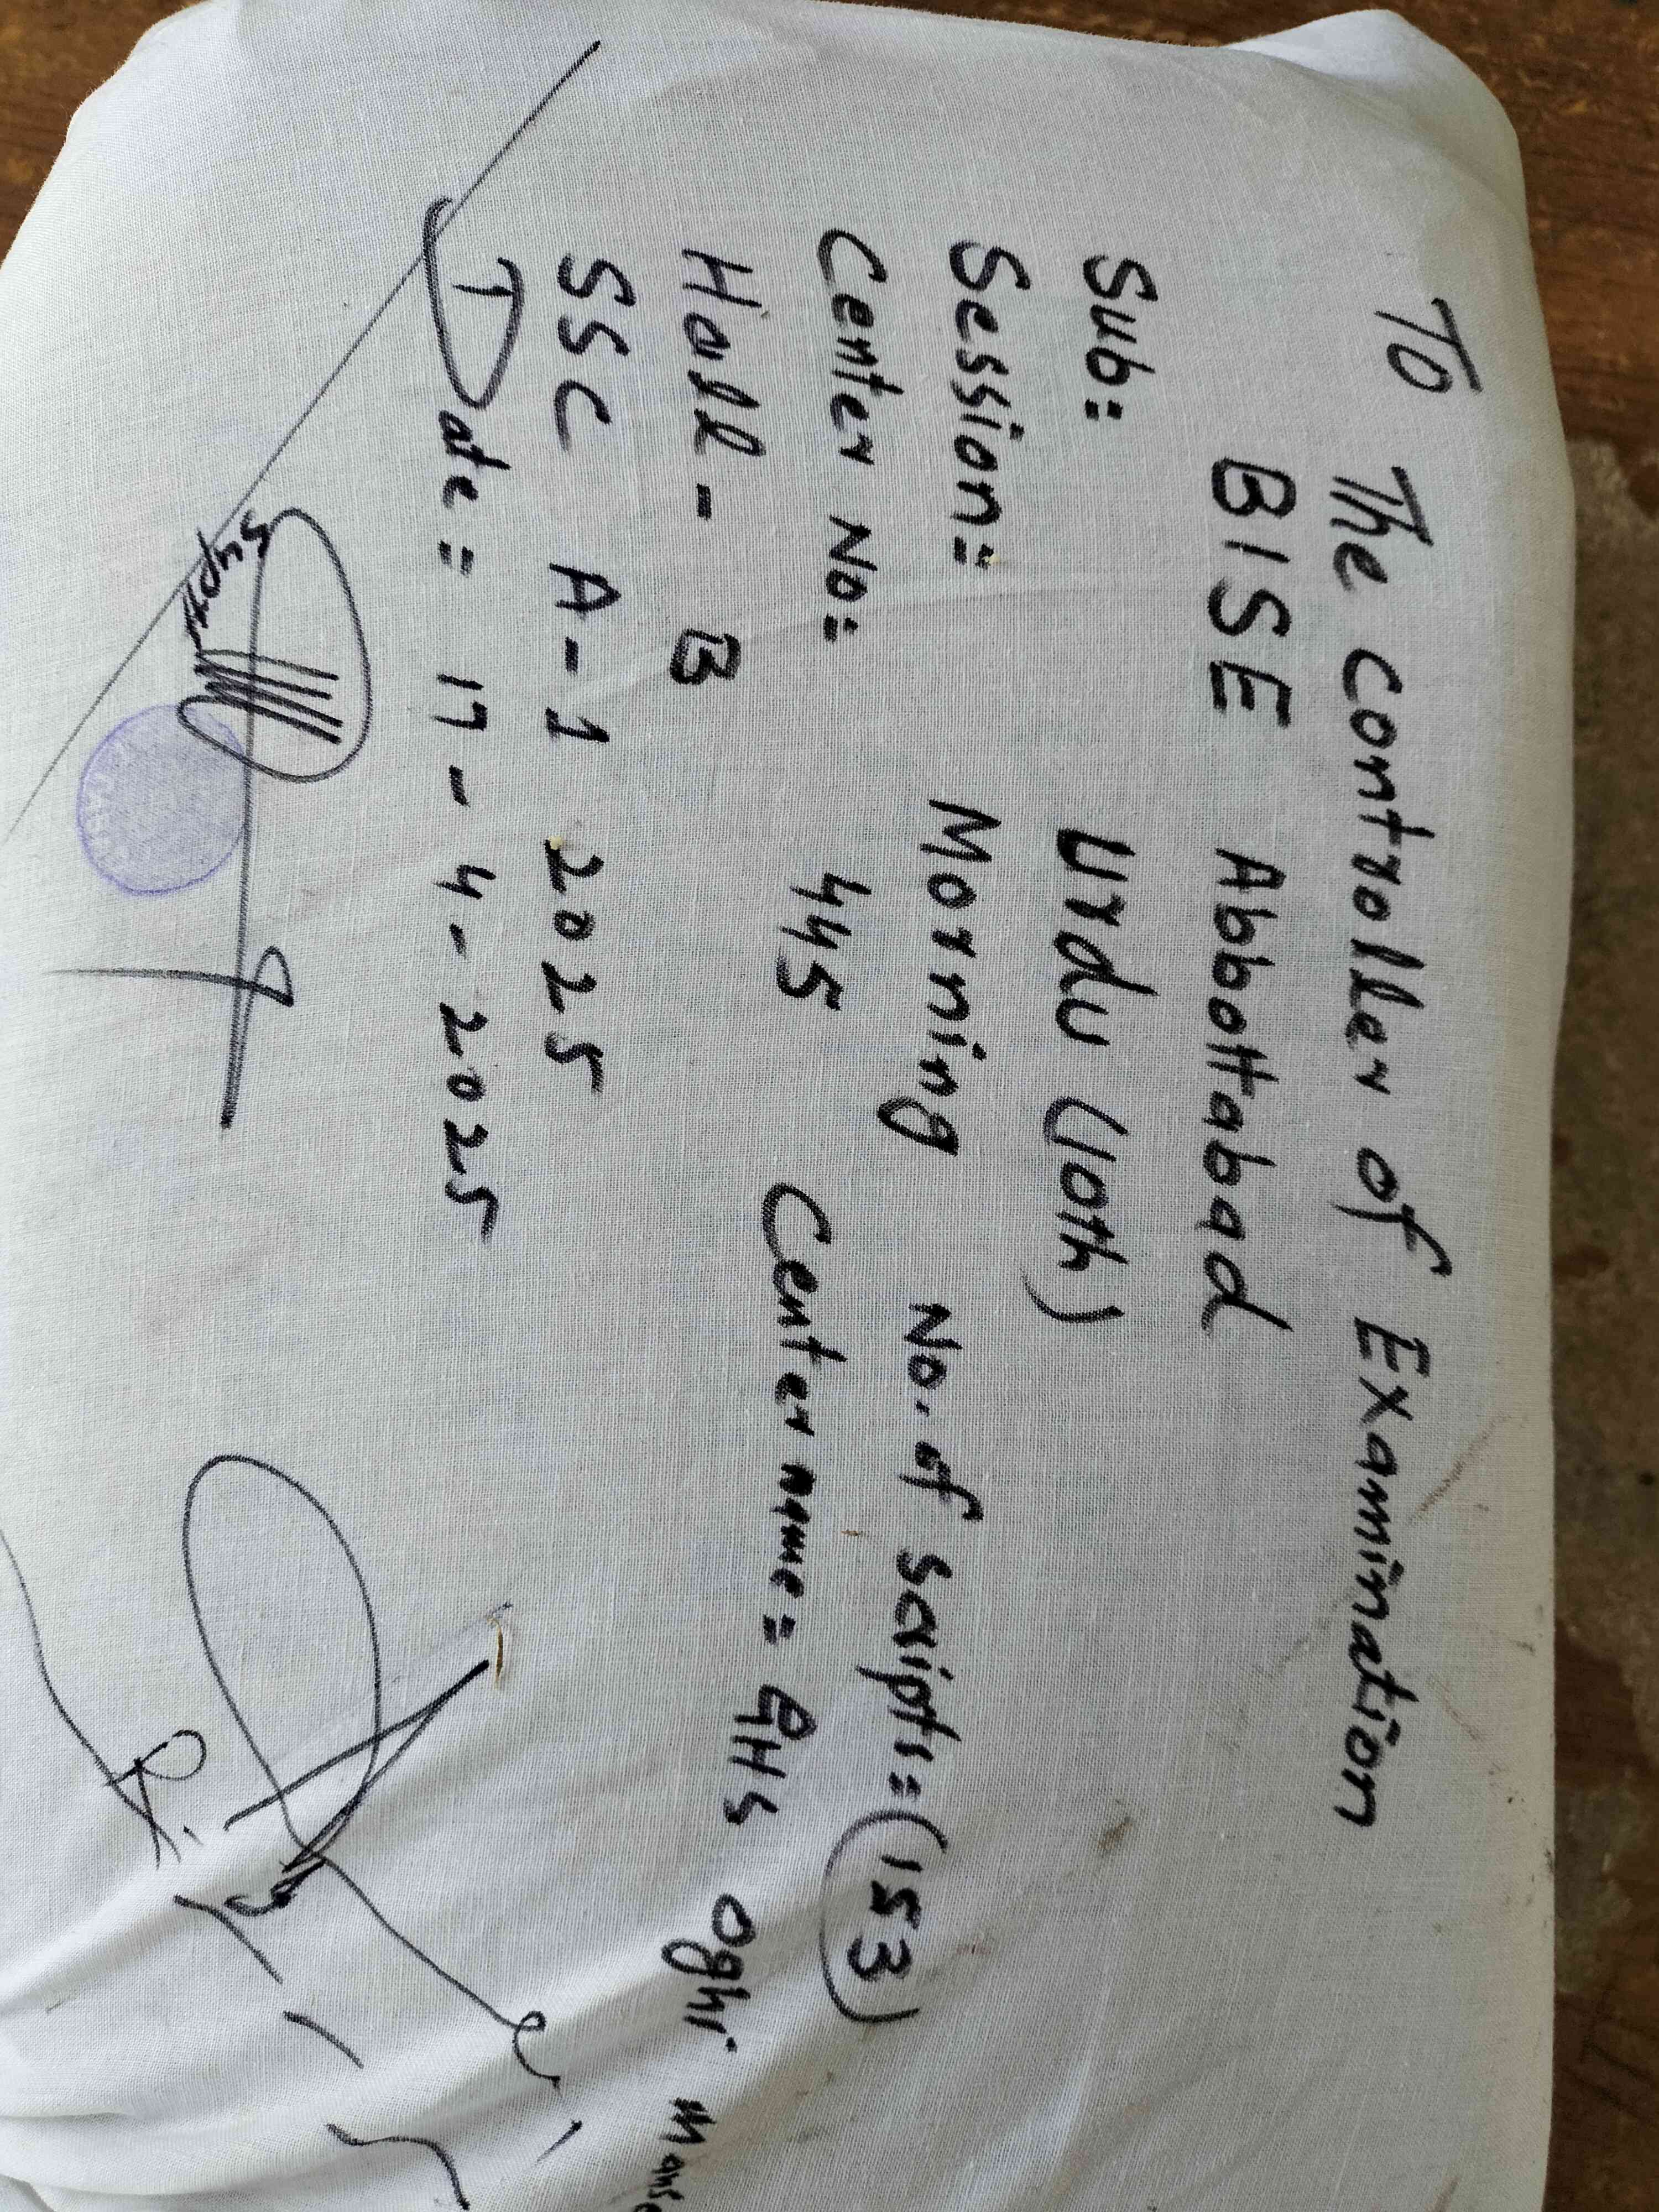 To
The Controller of Examination
BISE Abbottabad
Sub: Urdu (10th)
Session: Morning No. of Scripts = (153)
Center No: 445 Center name = GHS Oghi
Hall - B
SSC A-1 2025
Date = 17-4-2025